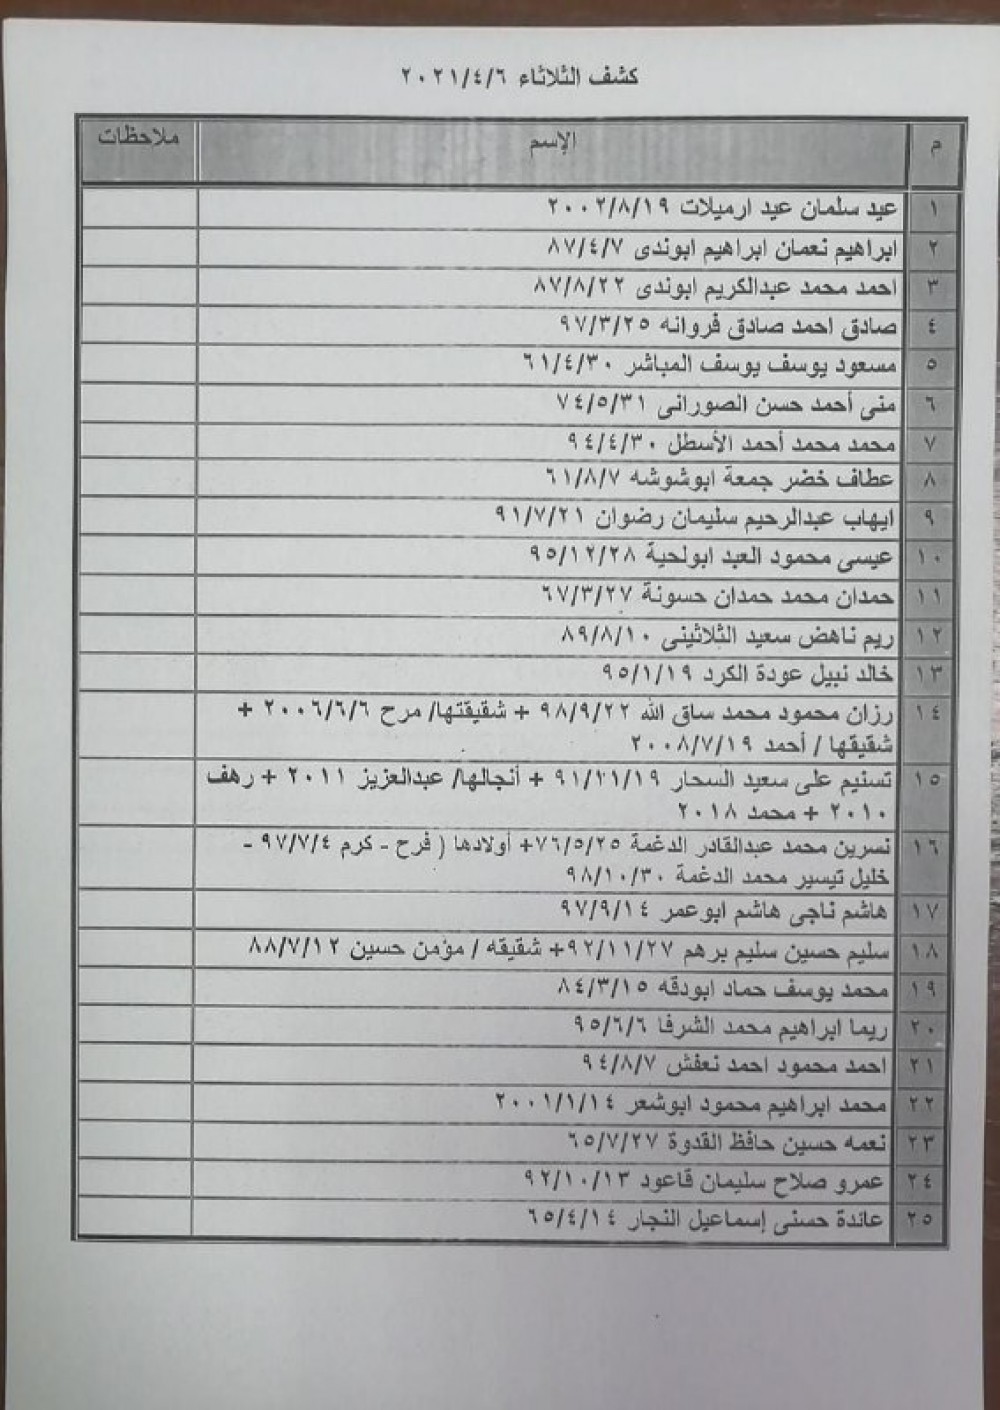 كشف الثلاثاء ٢٠٢١/٤/٦
م الإسم ملاحظات
١ عيد سلمان عيد ارميلات ٢٠٠٢/٨/١٩
٢ ابراهيم نعمان ابراهيم ابوندى ٨٧/٤/٧
٣ احمد محمد عبدالكريم ابوندى ٨٧/٨/٢٢
٤ صادق احمد صادق فروانه ٩٧/٣/٢٥
٥ مسعود يوسف يوسف المباشر ٦١/٤/٣٠
٦ منى أحمد حسن الصورانى ٧٤/٥/٣١
٧ محمد محمد أحمد الأسطل ٩٤/٤/٣٠
٨ عطاف خضر جمعة ابوشوشه ٦١/٨/٧
٩ ايهاب عبدالرحيم سليمان رضوان ٩١/٧/٢١
١٠ عيسى محمود العبد ابولحية ٩٥/١٢/٢٨
١١ حمدان محمد حمدان حسونة ٦٧/٣/٢٧
١٢ ريم ناهض سعيد الثلاثينى ٨٩/٨/١٠
١٣ خالد نبيل عودة الكرد ٩٥/١/١٩
١٤ رزان محمود محمد ساق الله ٩٨/٩/٢٢ + شقيقتها/ مرح ٢٠٠٦/٦/٦ +
شقيقها / أحمد ٢٠٠٨/٧/١٩
١٥ تسنيم على سعيد السحار ٩١/٢١/١٩ + أنجالها/ عبدالعزيز ٢٠١١ + رهف
٢٠١٠ + محمد ٢٠١٨
١٦ نسرين محمد عبدالقادر الدغمة ٧٦/٥/٢٥+ أولادها ( فرح - كرم ٩٧/٧/٤ -
خليل تيسير محمد الدغمة ٩٨/١٠/٣٠
١٧ هاشم ناجى هاشم ابوعمر ٩٧/٩/١٤
١٨ سليم حسين سليم برهم ٩٢/١١/٢٧+ شقيقه / مؤمن حسين ٨٨/٧/١٢
١٩ محمد يوسف حماد ابودقه ٨٤/٣/١٥
٢٠ ريما ابراهيم محمد الشرفا ٩٥/٦/٦
٢١ احمد محمود احمد نعفش ٩٤/٨/٧
٢٢ محمد ابراهيم محمود ابوشعر ٢٠٠١/١/١٤
٢٣ نعمه حسين حافظ القدوة ٦٥/٧/٢٧
٢٤ عمرو صلاح سليمان قاعود ٩٢/١٠/١٣
٢٥ عائدة حسنى إسماعيل النجار ٦٥/٤/١٤